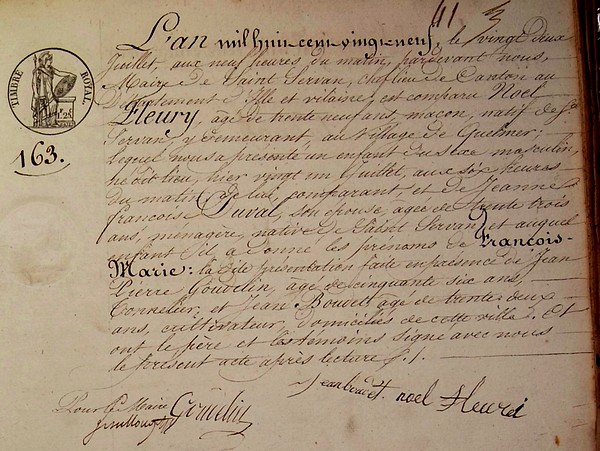 41
L'an mil huit cent vingt-neuf, le vingt deux
Juillet, aux neuf heures du matin, pardevant nous,
Maire de Saint Servan, chef lieu de Canton au
Département d'Ille et vilaine, est comparu Noel
Fleury, age de trente neuf ans, maçon, natif de St
Servan, y demeurant au village de Quelmer;
lequel nous a présenté un enfant du sexe masculin,
né dit lieu, hier vingt un Juillet, aux six heures
du matin, de lui, comparant et de Jeanne
françoise Duval, son épouse, agée de trente trois
ans, ménagère, native de Saint Servan, et auquel
enfant il a donné les prénoms de François-
Marie: la dite présentation faite en présence de Jean
Pierre Goudelin, age de cinquante six ans,
Tonnelier, et Jean Boudet age de trente deux
ans, cultivateur, domiciliés de cette ville. Et
ont le père et les témoins signé avec nous
le présent acte après lecture f.
TIMBRE ROYAL
1f 25
163.
Jean boudet. noel fleuri
Pour le Maire
Goudelin